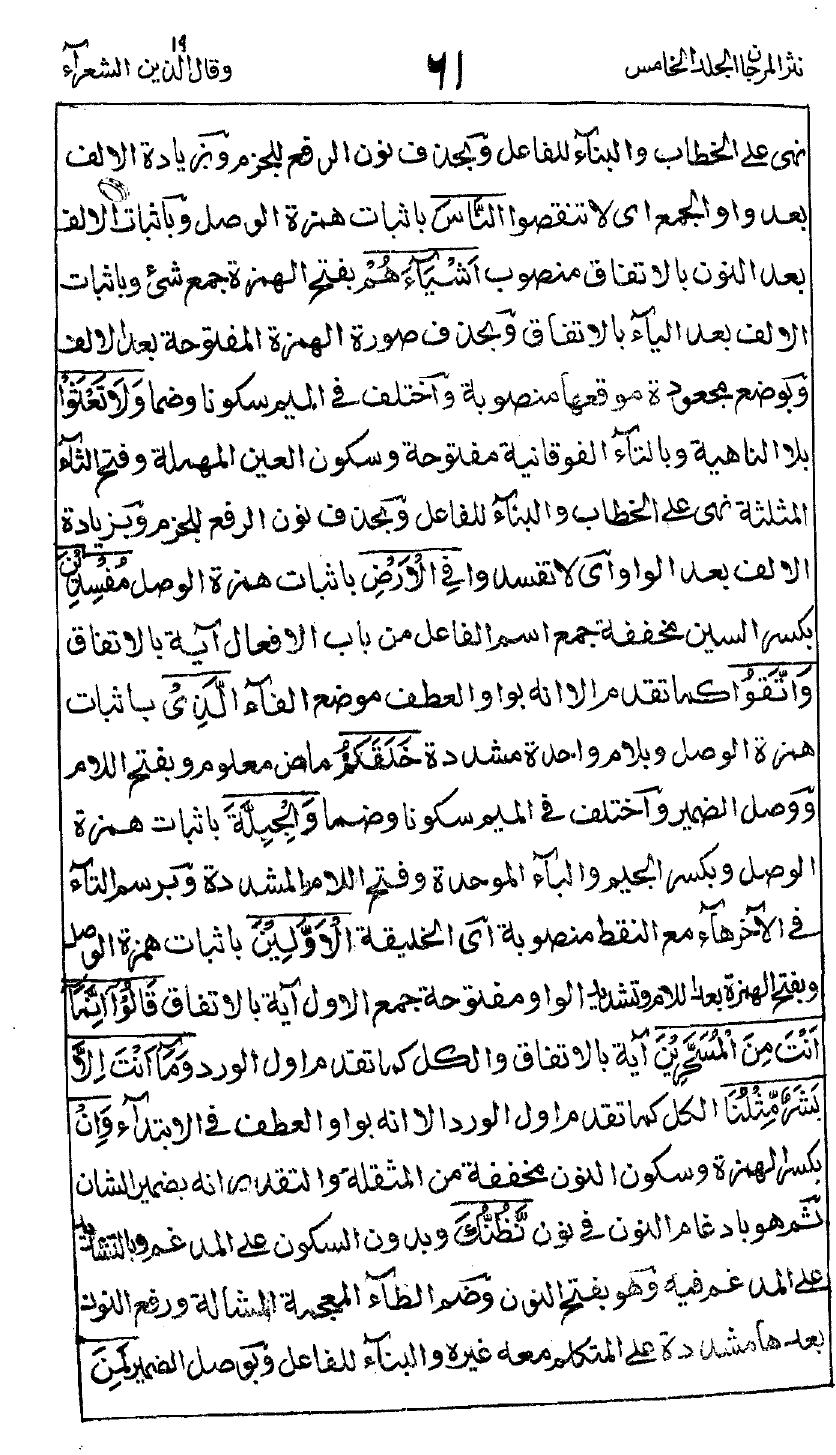 نثر المرجان الجلد الخامس ٦١ وقال الذين ١٩ الشعرآء
نهى على الخطاب والبنآء للفاعل وبحذف نون الرفع للجزم وبزيادة الالف
بعد واو الجمع اى لا تنقصوا النَّاسَ باثبات همزة الوصل وباثبات الالف
بعد النون بالاتفاق منصوب اَشْيَآءَهُمْ بفتح الهمزة جمع شئ وباثبات
الالف بعد اليآء بالاتفاق وبحذف صورة الهمزة المفتوحة بعد الالف
وبوضع مجعودة موقعها منصوبة وآختلف فى الميم سكونا وضما وَلَا تَعْثَوْا
بلا الناهية وبالتآء الفوقانية مفتوحة وسكون العين المهملة وفتح الثآء
المثلثة نهى على الخطاب والبنآء للفاعل وبحذف نون الرفع للجزم وبزيادة
الالف بعد الواو آى لا تفسدوا فِى الْاَرْضِ باثبات همزة الوصل مُفْسِدِيْنَ
بكسر السين مخففة جمع اسم الفاعل من باب الافعال آية بالاتفاق
وَاتَّقُوا كما تقدم الا انه بواو العطف موضع الفآء الَّذِىْ باثبات
همزة الوصل وبلام واحدة مشددة خَلَقَكُمْ ماض معلوم وبفتح اللام
ووصل الضمير وآختلف فى الميم سكونا وضما وَالْجِبِلَّةَ باثبات همزة
الوصل وبكسر الجيم والبآء الموحدة وفتح اللام المشددة وبرسم التآء
فى الآخر هآء مع النقط منصوبة آى الخليقة الْاَوَّلِيْنَ باثبات همزة الوصل
وبفتح الهمزة بعد اللام وتشديد الواو مفتوحة جمع الاول آية بالاتفاق قَالُوْآ اِنَّمَآ
اَنْتَ مِنَ الْمُسَحَّرِيْنَ آية بالاتفاق والكل كما تقدم اول الورد وَمَآ اَنْتَ اِلَّا
بَشَرٌ مِّثْلُنَا الكل كما تقدم اول الورد الا انه بواو العطف فى الابتدآء وَاِنْ
بكسر الهمزة وسكون النون مخففة من المثقلة والتقدير انه بضمير الشان
ثم هو بادغام النون فى نون نَّظُنُّكَ وبدون السكون على المدغم وبالتشديد
على المدغم فيه وهو بفتح النون وضم الظآء المعجمة المشالة ورفع النون
بعدها مشددة على المتكلم معه غيره والبنآء للفاعل وبوصل الضمير لَمِنَ